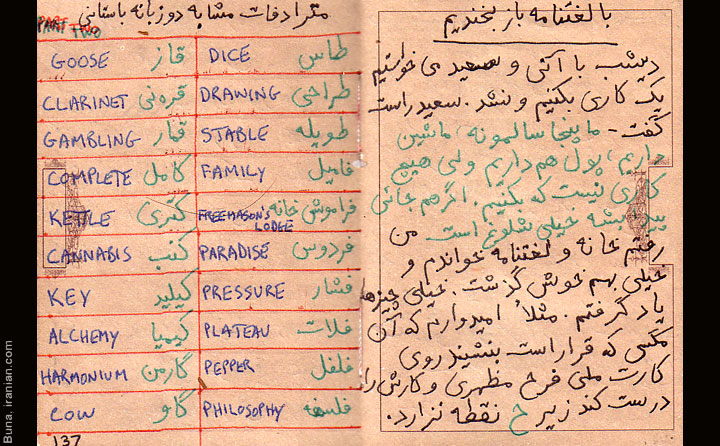 با لغتنامه باز بخندیم
دیشب با آتی و سعید می خواستیم
یک کاری بکنیم و نشد. سعید راست
گفت - ما پنجا سالمونه، ماشین
داریم، پول هم داریم ولی هیچ
کاری نیست که بکنیم. اگر هم جائی
پیدا بشه خیلی شلوغ است. من
رفتم خانه و لغتنامه خواندم و
خیلی بهم خوش گذشت. خیلی چیزها
یاد گرفتم. مثلاً امیدوارم که آن
مگسی که قرار است بنشیند روی
کارت ملی فرح مظهری و کارش را
درست کند زیر ح نقطه نزارد.
مترادفات مشابه دو زبانه باستانی
PART TWO
GOOSE قاز DICE طاس
CLARINET قره نی DRAWING طراحی
GAMBLING قمار STABLE طویله
COMPLETE کامل FAMILY فامیل
KETTLE کتری FREEMASON'S LODGE فراموش خانه
CANNABIS کنب PARADISE فردوس
KEY کیلید PRESSURE فشار
ALCHEMY کیمیا PLATEAU فلات
HARMONIUM گارمن PEPPER فلفل
COW گاو PHILOSOPHY فلسفه
137
Buna, iranian.com